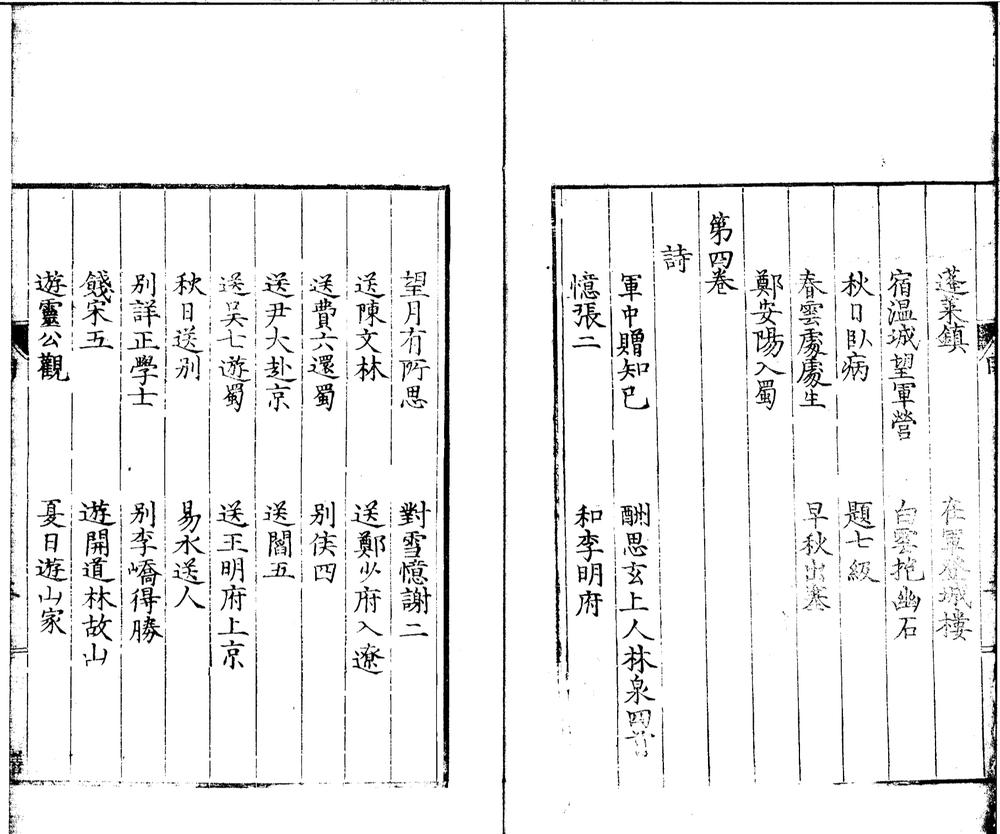 蓬萊鎮　在軍登城樓
宿温城望軍營　白雲抱幽石
秋日臥病　題七級
春雲處處生　早秋出塞
鄭安陽入蜀
第四卷
詩
軍中贈知已　酬思玄上人林泉四首
憶張二　和李明府
望月有所思　對雪憶謝二
送陳文林　送鄭少府入遼
送費六還蜀　別侯四
送尹大赴京　送閻五
送吴七遊蜀　送王明府上京
秋日送别　易水送人
别詳正學士　别李嶠得勝
餞宋五　遊開道林故山
遊靈公觀　夏日遊山家